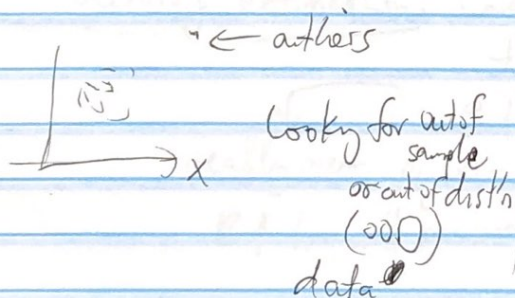 ← outliers
X
Looking for out of
sample
or out of dist'n
(OOD)
data